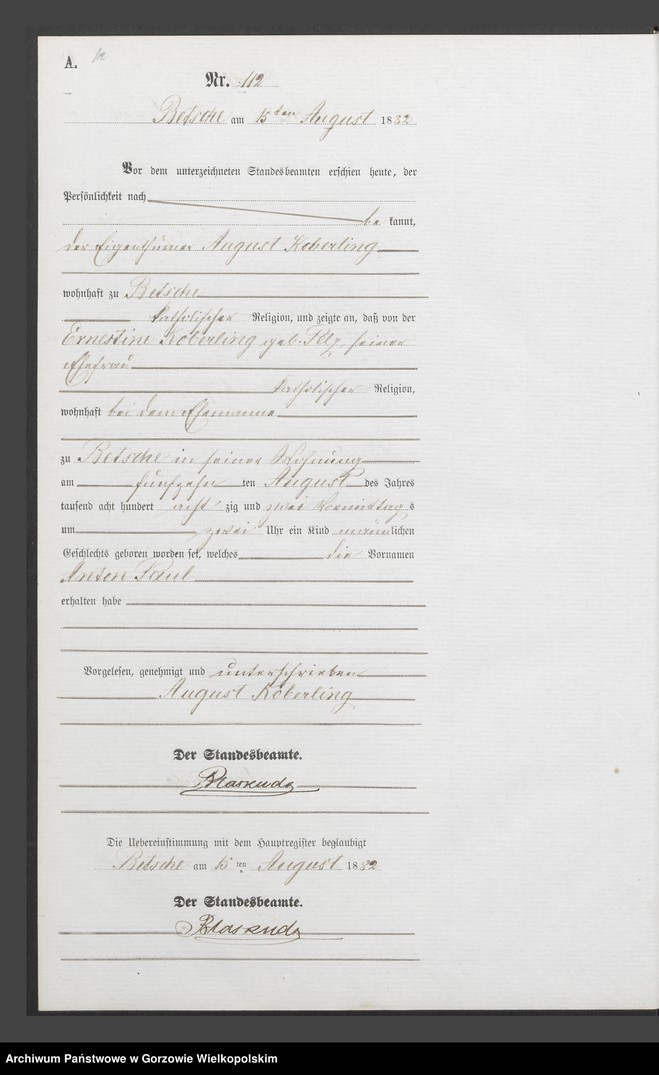 A.
Nr. 112
Betsche am 15ten August 1882
Vor dem unterzeichneten Standesbeamten erschien heute, der
Persönlichkeit nach
be kannt,
der Eigenthümer August Koberling
wohnhaft zu Betsche
katholischer Religion, und zeigte an, daß von der
Ernestine Koberling geb. seiner
Ehefrau
katholischer Religion,
wohnhaft bei dem Ehemanne
zu Betsche in seiner Wohnung
am fünfzehn ten August des Jahres
tausend acht hundert acht zig und zwei Vormittags
um zwei Uhr ein Kind männlichen
Geschlechts geboren worden sei, welches die Vornamen
Anton Paul
erhalten habe
Vorgelesen, genehmigt und unterschrieben
August Koberling
Der Standesbeamte.
Die Uebereinstimmung mit dem Hauptregister beglaubigt
Betsche am 15ten August 1882
Der Standesbeamte.
Archiwum Państwowe w Gorzowie Wielkopolskim